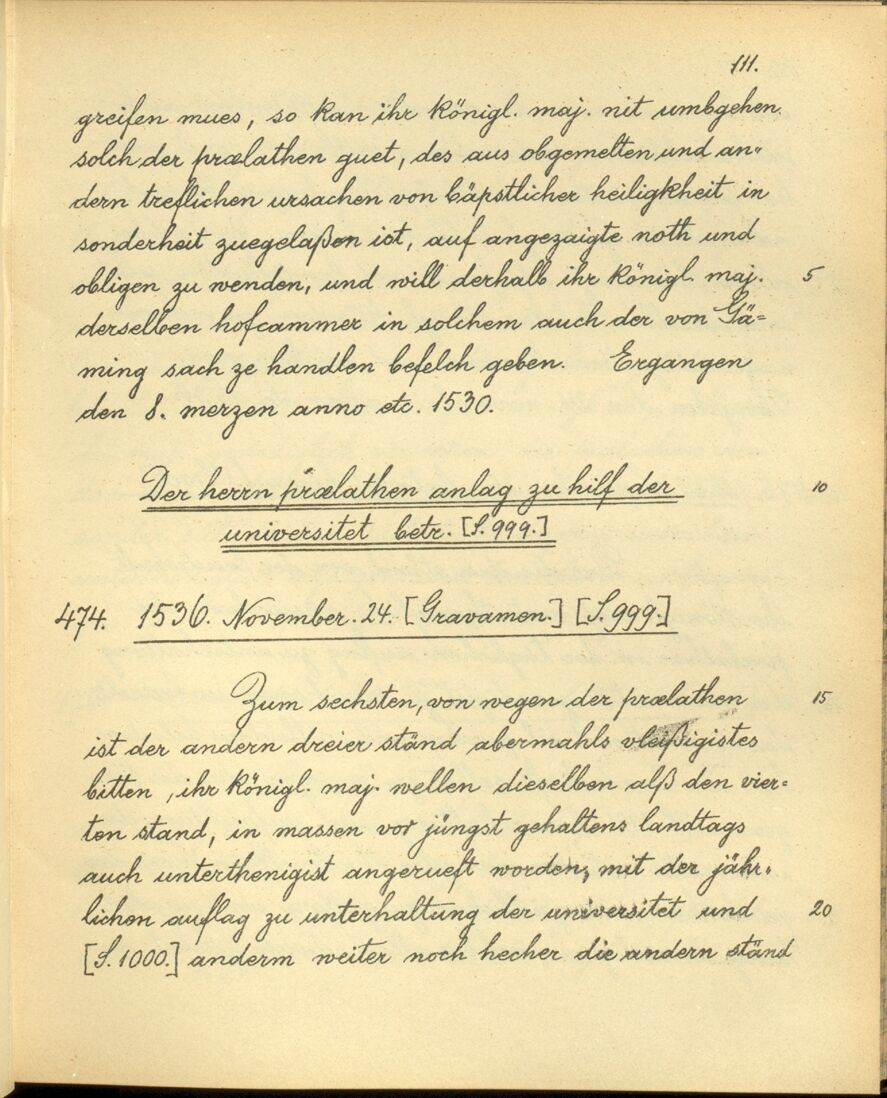 111.
greifen mues, so kan ihr königl. maj. nit umbgehen
solch der prælathen guet, des aus obgemelten und an-
dern treflichen ursachen von bäpstlicher heiligkheit in
sonderheit zuegelaßen ist, auf angezaigte noth und
obligen zu wenden, und will derhalb ihr königl. maj. 5
derselben hofcammer in solchem auch der von Gä=
ming sach ze handlen befelch geben. Ergangen
den 8. merzen anno etc. 1530.
Der herrn prælathen anlag zu hilf der 10
universitet betr. [S. 999.]
474. 1536. November. 24. [Gravamen.] [S. 999.]
Zum sechsten, von wegen der prælathen 15
ist der andern dreier ständ abermahls vleißigistes
bitten, ihr königl. maj. wellen dieselben alß den vier=
ten stand, in massen vor jüngst gehaltens landtags
auch unterthenigist angerueft worden, mit der jähr=
lichen auflag zu unterhaltung der universitet und 20
[S. 1000.] anderm weiter noch hecher die andern ständ